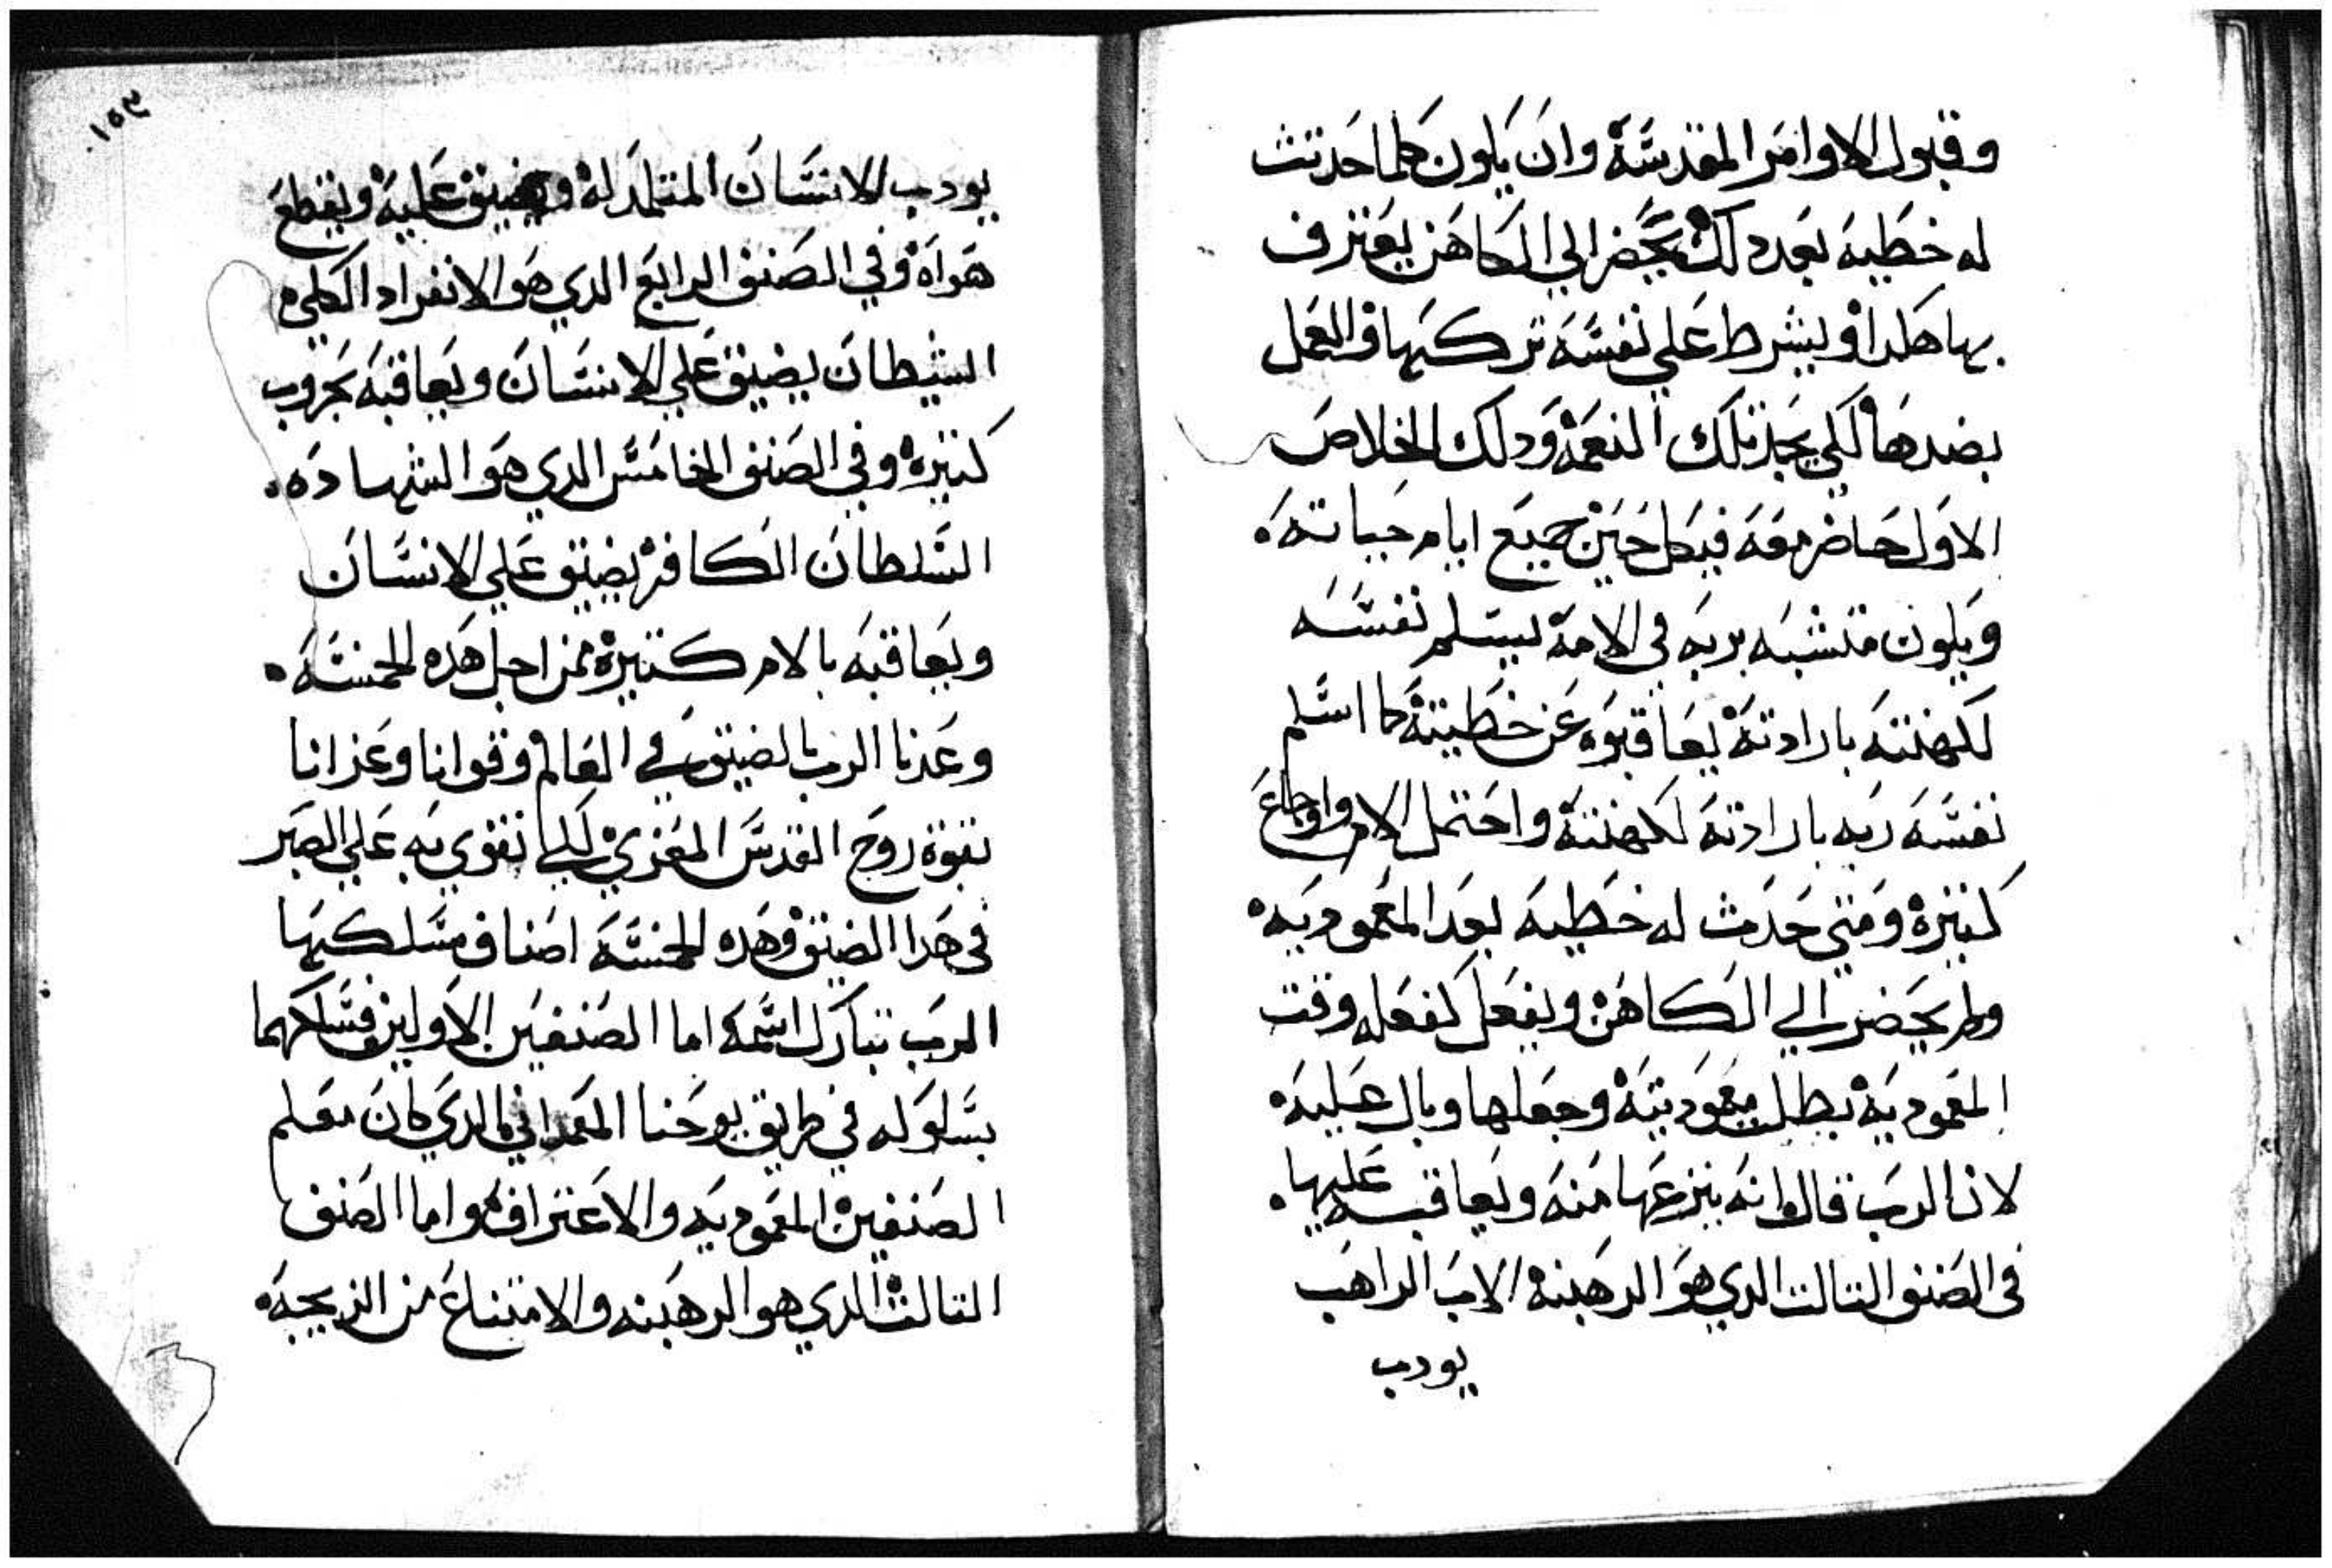 وقبول الاوامر المقدسة وان يكون كلما حدتت
له خطيه بعد دلك يحضر الي الكاهن يعترف
بها هكدا ويشرط علي نفسه تركها والعمل
بضدها لكي يجد تلك النعمة ودلك الخلاص
الاول حاضر معه فيكل حين جميع ايام حياته
ويكون متشبه بربه في الامه يسلم نفسه
لكهنته بارادته يعاقبوه عن خطيته كما اسلم
نفسه ربه بارادته لكهنته واحتمل الام واوجاع
كتيرة ومتي حدث له خطيه بعد المعموديه
ولم يحضر الي الكاهن ويفعل كفعله وقت
المعموديه بطلت معموديته وجعلها وبال عليه
لان الرب قال انه ينزعها منه ويعاقبه عليها
في الصنف التالت الدي هو الرهبنه الاب الراهب
يودب
١٥٣
يودب الانسان المتلمد له ويضيق عليه ويقطع
هواه وفي الصنف الرابع الدي هو الانفراد الكلي
الشيطان يضيق علي الانسان ويعاقبه بحروب
كتيره وفي الصنف الخامس الدي هو الشهاده
السلطان الكافر يضيق علي الانسان
ويعاقبه بالام كتيرة من اجل هده الخمسه
وعدنا الرب بالضيق في العالم وقوانا وعزانا
بقوة روح القدس المعزي لكيما نقوي به علي الصبر
في هدا الضيق وهده الخمسه اصناف سلكها
الرب تبارك اسمه اما الصنفين الاولين فسلكهما
بسلوكه في طريق يوحنا المعمداني الدي كان معلم
الصنفين المعموديه والاعتراف واما الصنف
التالت الدي هو الرهبنه والامتناع من الزيجه